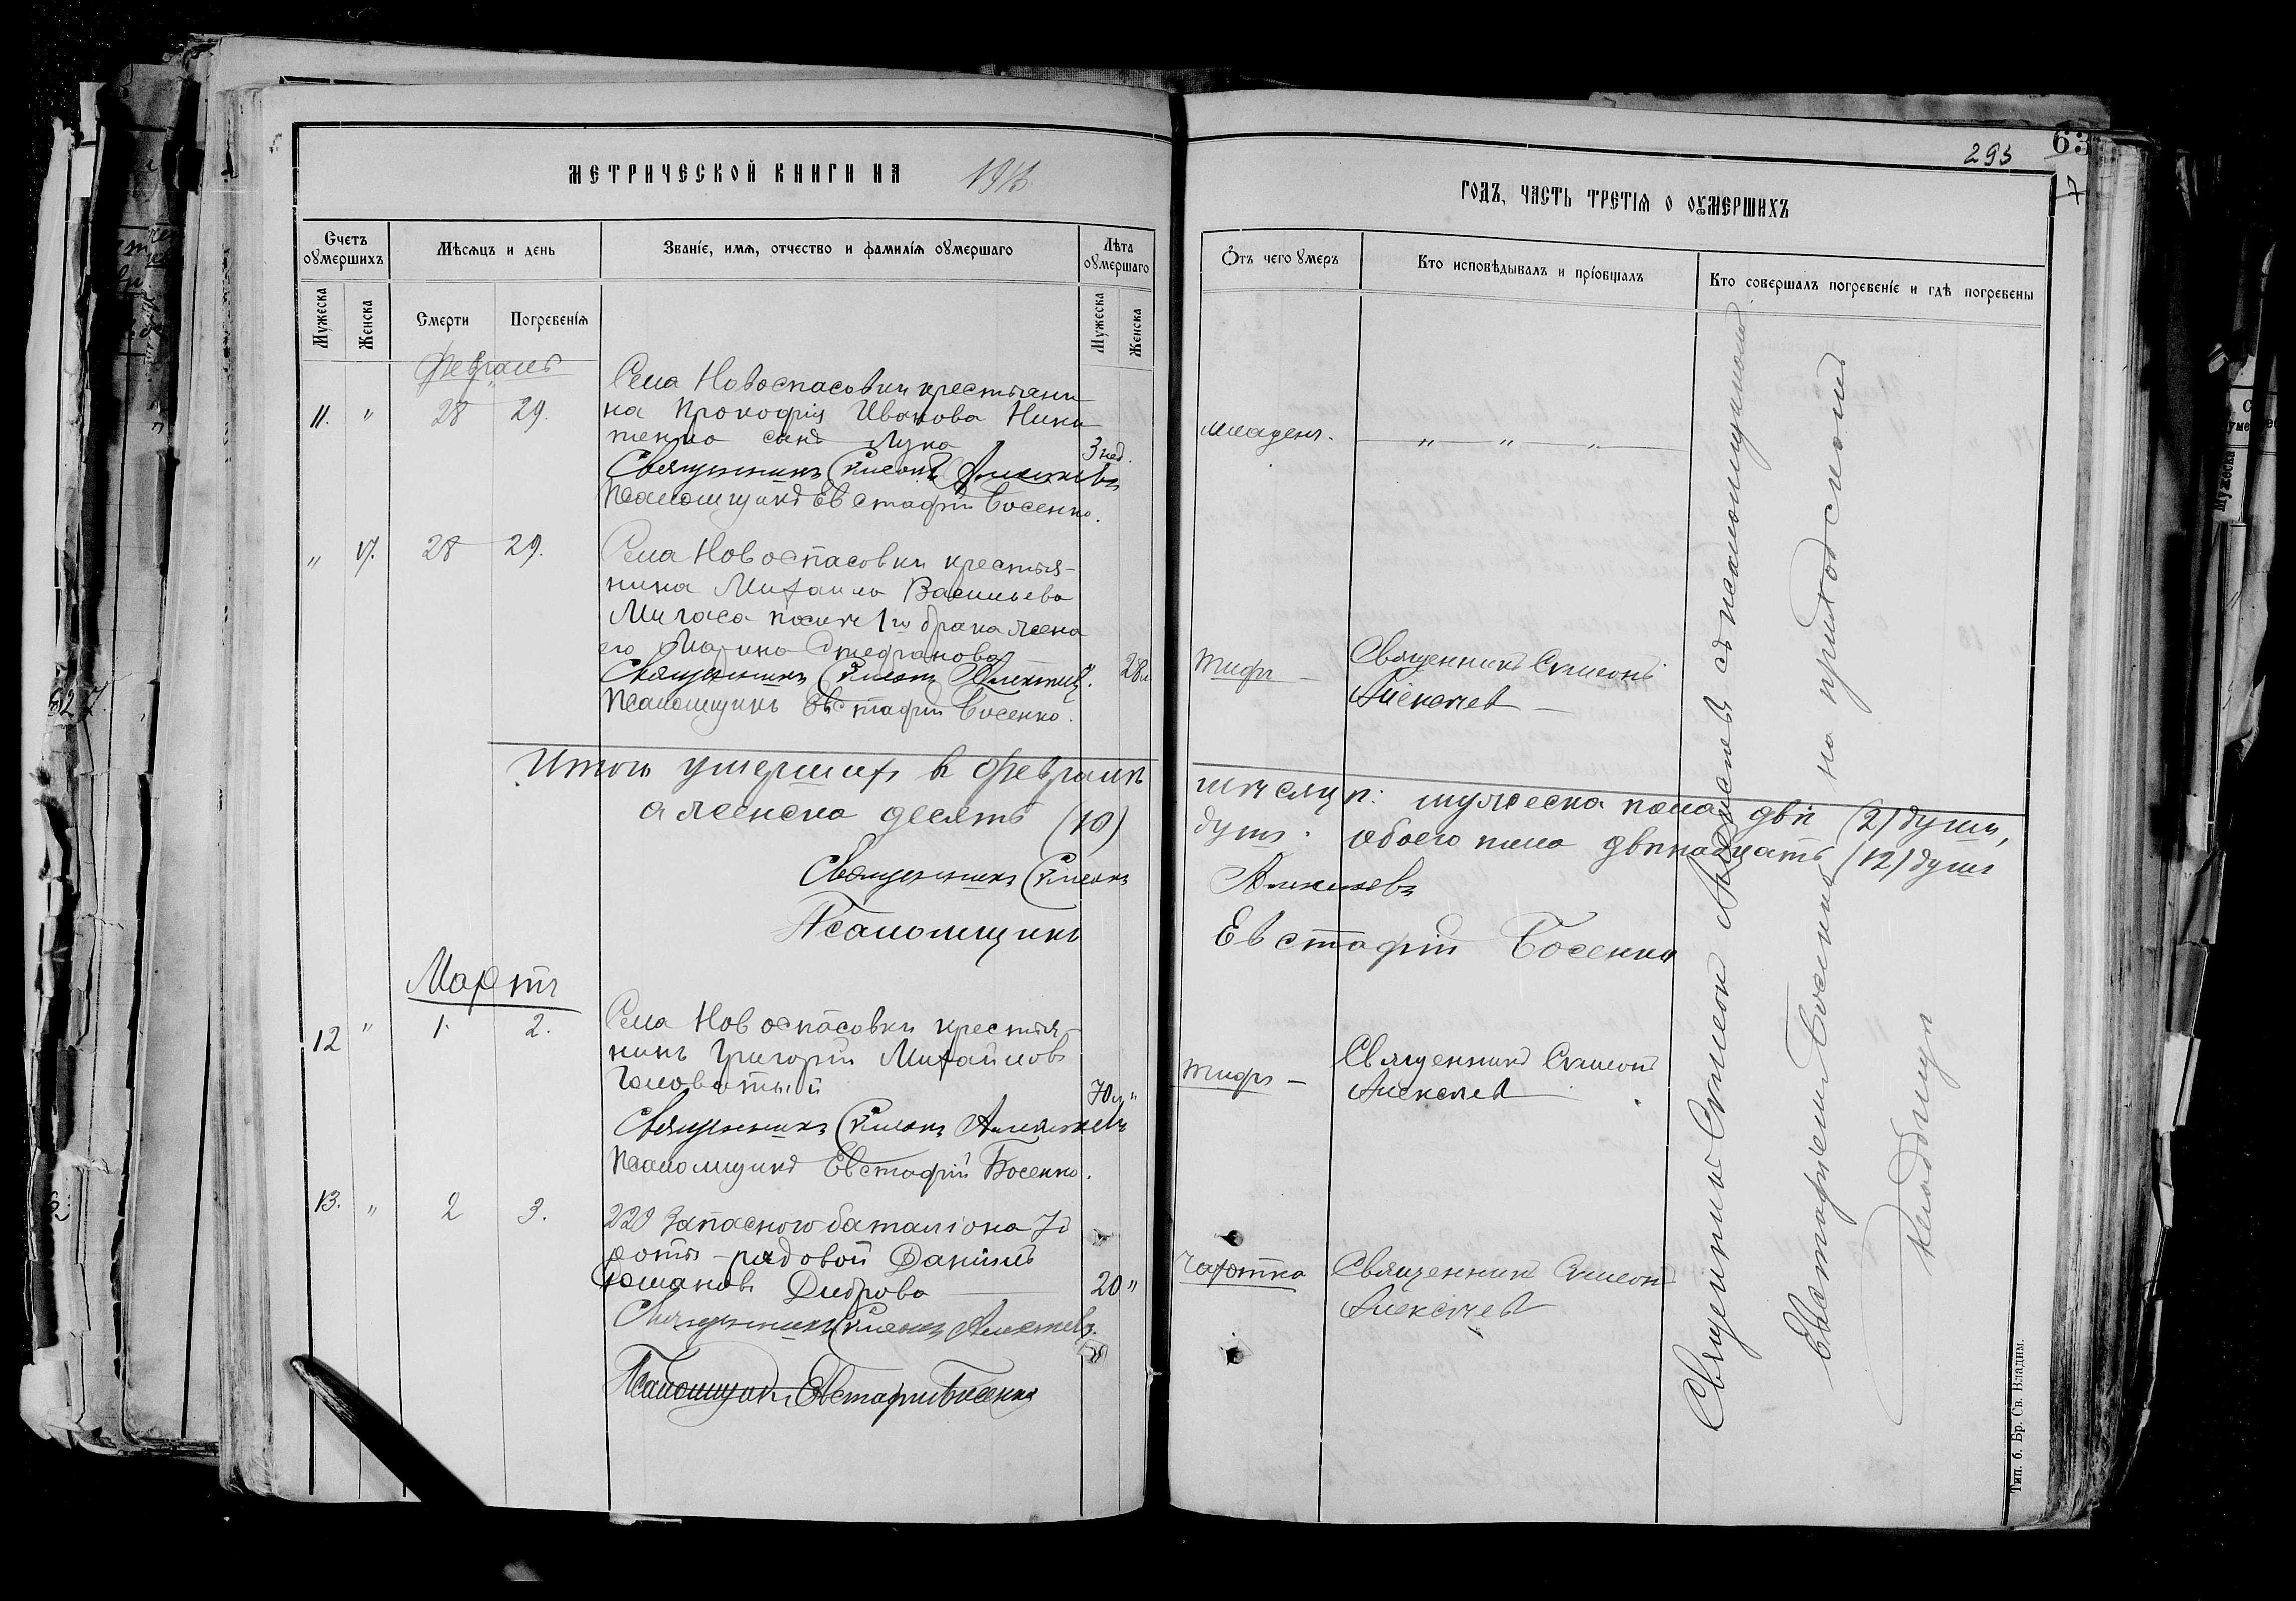 МЕТРИЧЕСКОЙ КНИГИ НА 1916
Счетъ оумершихъ
Мѣсяцъ и день
Званіе, имя, отчество и фамилія оумершаго
Лѣта оумершаго
Мужеска
Женска
Смерти
Погребенія
Мужеска
Женска
Февраль
11. " 28 29.
Села Новоспасовки крестьяни
на Прокофія Иванова Ники
тенко сынъ Лука
3 нед.
Священникъ Симеонъ Алексѣевъ
Псаломщикъ Евстафій Босенко.
" 17. 28 29.
Села Новоспасовки крестья-
нина Михаила Васильева
Мигаса после 1го брака жена
его Марина Стефанова
28 л
Священникъ Симеонъ Алексѣевъ.
Псаломщикъ Евстафій Босенко.
Итого умершихъ въ Февралѣ
а женска десять (10)
Священникъ Симеонъ
Псаломщикъ
Мартъ
12 " 1. 2.
Села Новоспасовки крестья-
нинъ Григорій Михайловъ
Головатый
70 л. "
Священникъ Симеонъ Алексѣевъ
Псаломщикъ Евстафій Босенко.
13. " 2 3.
229 Запасного баталіона 7й
роты рядовой Даніилъ
Диброва
20 "
Священникъ Симеонъ Алексѣевъ.
Псаломщикъ Евстафій Босенко
293
63
7
ГОДЪ, ЧАСТЬ ТРЕТІЯ О ОУМЕРШИХЪ
Отъ чего умеръ
Кто исповѣдывалъ и пріобщалъ
Кто совершалъ погребеніе и гдѣ погребены
младенч. " " "
тифъ
Священникъ Симеонъ
Алексѣевъ
мѣсяцѣ: мужеска пола двѣ (2) души,
душъ. обоего пола двѣнадцать (12) душъ
Алексѣевъ
Евстафій Босенко
тифъ
Священникъ Симеонъ
Алексѣевъ
Чахотка
Священникъ Симеонъ
Алексѣевъ
Священникъ Симеонъ Алексѣевъ съ псаломщикомъ
Евстафіемъ Босенкомъ на приходскомъ
кладбищѣ
Тип. б. Бр. Св. Владим.